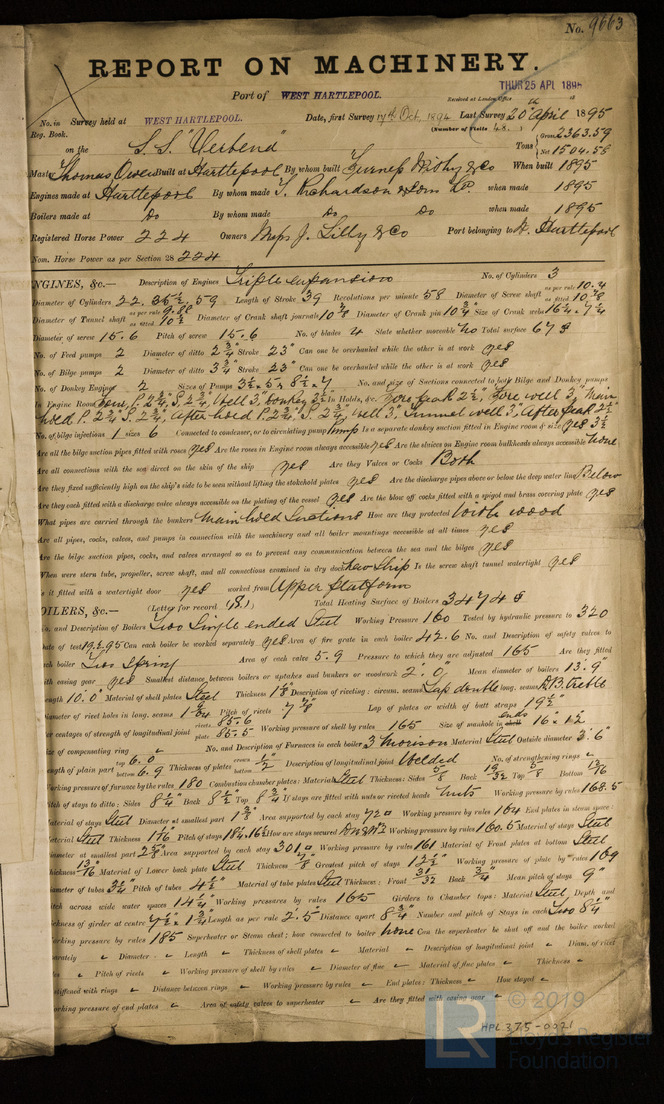 No. 9663
REPORT ON MACHINERY.
THUR 25 APL 1895
Port of WEST HARTLEPOOL.
Received at London Office 18
No. in Survey held at WEST HARTLEPOOL. Date, first Survey 17th Oct. 1894 Last Survey 20th April 1895
Reg. Book. (Number of Visits 48.)
on the S.S. "Verbena" Tons Gross 2363.59 Net 1504.58
Master Thomas Owen Built at Hartlepool By whom built Furness Withy & Co When built 1895
Engines made at Hartlepool By whom made T. Richardson & Sons Ld. when made 1895
Boilers made at Do By whom made Do Do when made 1895
Registered Horse Power 224 Owners Messrs J. Lilly & Co Port belonging to W. Hartlepool
Nom. Horse Power as per Section 28 224
NGINES, &c.— Description of Engines Triple expansion No. of Cylinders 3
Diameter of Cylinders 22. 35½. 59 Length of Stroke 39 Revolutions per minute 58 Diameter of Screw shaft as per rule 10.4 as fitted 10⅞
Diameter of Tunnel shaft as per rule 9.88 as fitted 10½ Diameter of Crank shaft journals 10⅞ Diameter of Crank pin 10¾ Size of Crank webs
Diameter of screw 15.6 Pitch of screw 15.6 No. of blades 4 State whether moveable No Total surface 67
No. of Feed pumps 2 Diameter of ditto 2¾ Stroke 23" Can one be overhauled while the other is at work yes
No. of Bilge pumps 2 Diameter of ditto 3¾ Stroke 23" Can one be overhauled while the other is at work yes
No. of Donkey Engines 2 Sizes of Pumps No. and size of Suctions connected to both Bilge and Donkey pumps
In Engine Room P. 2¾" S. 2¾, Well 3" Donkey In Holds, &c. Fore peak 2½, Fore well 3" Main
hold P. 2¾" S. 2¾, After hold P. 2¾" S. 2¾" Well 3", Tunnel well 3", After peak 2½
No. of bilge injections 1 sizes 6 Connected to condenser, or to circulating pump Pump Is a separate donkey suction fitted in Engine room & size yes 3½
Are all the bilge suction pipes fitted with roses yes Are the roses in Engine room always accessible yes Are the sluices on Engine room bulkheads always accessible none
Are all connections with the sea direct on the skin of the ship yes Are they Valves or Cocks Both
Are they fixed sufficiently high on the ship's side to be seen without lifting the stokehold plates yes Are the discharge pipes above or below the deep water line Below
Are they each fitted with a discharge valve always accessible on the plating of the vessel yes Are the blow off cocks fitted with a spigot and brass covering plate yes
What pipes are carried through the bunkers Main hold Suctions How are they protected With wood
Are all pipes, cocks, valves, and pumps in connection with the machinery and all boiler mountings accessible at all times yes
Are the bilge suction pipes, cocks, and valves arranged so as to prevent any communication between the sea and the bilges yes
When were stern tube, propeller, screw shaft, and all connections examined in dry dock New Ship Is the screw shaft tunnel watertight yes
Is it fitted with a watertight door yes worked from Upper platform
OILERS, &c.— (Letter for record (S.)) Total Heating Surface of Boilers 3474
No. and Description of Boilers Two Single ended Steel Working Pressure 160 Tested by hydraulic pressure to 320
Date of test 19.2.95 Can each boiler be worked separately yes Area of fire grate in each boiler 42.6 No. and Description of safety valves to
each boiler Two Spring Area of each valve 5.9 Pressure to which they are adjusted 165 Are they fitted
with easing gear yes Smallest distance between boilers or uptakes and bunkers or woodwork 2' 0" Mean diameter of boilers 13' 9"
Length 10' 0" Material of shell plates Steel Thickness 1⅛ Description of riveting: circum. seams Lap double long. seams D.B. treble
Diameter of rivet holes in long. seams Pitch of rivets 7⅞ Lap of plates or width of butt straps 19½"
Per centages of strength of longitudinal joint rivets 85.6 plate 85.5 Working pressure of shell by rules 165 Size of manhole in ends 16 × 12
Size of compensating ring No. and Description of Furnaces in each boiler 3 Morison Material Steel Outside diameter 3' 6"
Length of plain part top 6.0 bottom 6.9 Thickness of plates crown bottom ½ Description of longitudinal joint Welded No. of strengthening rings
Working pressure of furnace by the rules 180 Combustion chamber plates: Material Steel Thickness: Sides ⅝ Back 19/32 Top ⅝ Bottom 13/16
Pitch of stays to ditto: Sides 8¼ Back 8½ Top 8¾ If stays are fitted with nuts or riveted heads Nuts Working pressure by rules 168.5
Material of stays Steel Diameter at smallest part Area supported by each stay 72 Working pressure by rules 164 End plates in steam space:
Material Steel Thickness Pitch of stays How are stays secured Working pressure by rules 160.5 Material of stays Steel
Diameter at smallest part Area supported by each stay 301 Working pressure by rules 161 Material of Front plates at bottom Steel
Thickness 13/16 Material of Lower back plate Steel Thickness ⅞ Greatest pitch of stays Working pressure of plate by rules 169
Diameter of tubes 3¼ Pitch of tubes 4½ Material of tube plates Steel Thickness: Front 31/32 Back ¾ Mean pitch of stays 9"
Pitch across wide water spaces 14¼ Working pressures by rules 165 Girders to Chamber tops: Material Steel Depth and
thickness of girder at centre 7½ × 1¾ Length as per rule 2' 5" Distance apart 8¾ Number and pitch of Stays in each Two 8¼"
Working pressure by rules 185 Superheater or Steam chest; how connected to boiler None Can the superheater be shut off and the boiler worked
separately Diameter Length Thickness of shell plates Material Description of longitudinal joint Diam. of rivet
Pitch of rivets Working pressure of shell by rules Diameter of flue Material of flue plates Thickness
stiffened with rings Distance between rings Working pressure by rules End plates: Thickness How stayed
Working pressure of end plates Area of safety valves to superheater Are they fitted with easing gear
© 2019
HPL375-0021
LR
Lloyd's Register
Foundation